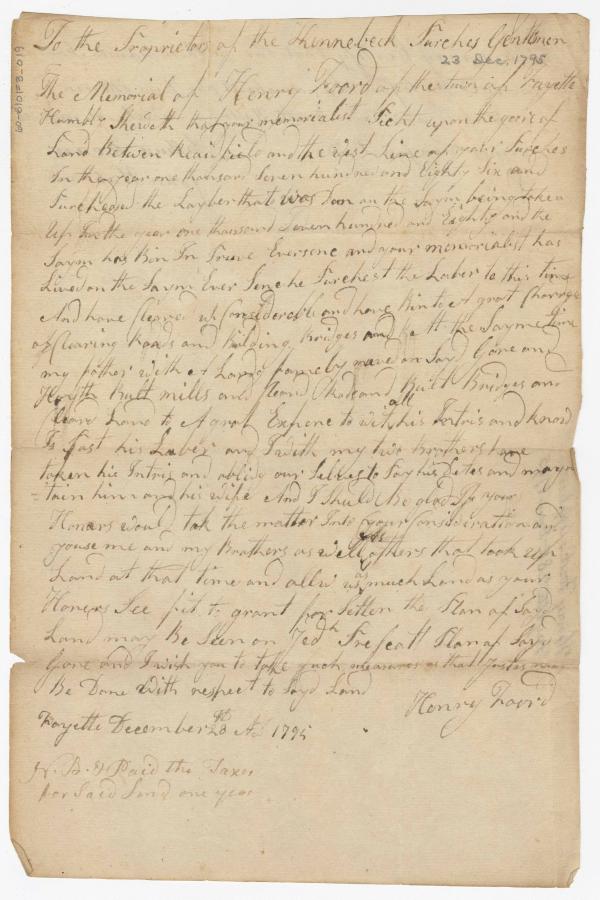 To the Proprietors of the Kennebeck Purches Gentelmen
23 Dec. 1795
The Memorial of Henry Foord of the town of Fayette
Humbly Sheweth that your memorialist Picht upon the goore of
Land Betwen Readfield and the west Line of your Purches
In the year one thousand Seven hundred and Eighty Six and
Purchesed the Layber that was Don on the Saym being taken
up In the year one thousand Seven hundred and Eighty and the
Saym has Bin In Prove Eversence and your memorialist has
Lived on the Saym Ever Senche Purchest the Laber to this time
And have Cleared up Considerable and have bin to A grat Charge
of Clearing Roads and Bulding Bridges and at the Sayme time
my father with A Large famely moved on Sayd Gore and
Built mills and Cleard Roads and Built Bridges and
Cleard Land to A grat Expence to with all his Intris and
Is Lost his Laber and I with my two Brothers have
taken his Intris and oblidg our Selves to Pay his Detes and mayn
=tain him and his wife And I Shuld Be glad If your
Honers would tak the matter Into your Consideration and
youse me and my Boathers as well as others that took up
Land at that time and allow us as much Land as your
Honers See fit to grant for Setlen the Plan of Sayd
Land may Be Seen on Jedh Prescatt Plan of Sayd
Gore and I wish you to take such measures as that Justes may
Be Done with respect to Sayd Land
Henry Foord
Fayette December 23th AD 1795
N. B. I Paid the Taxes
for Said Land one year
60-6101F3-019